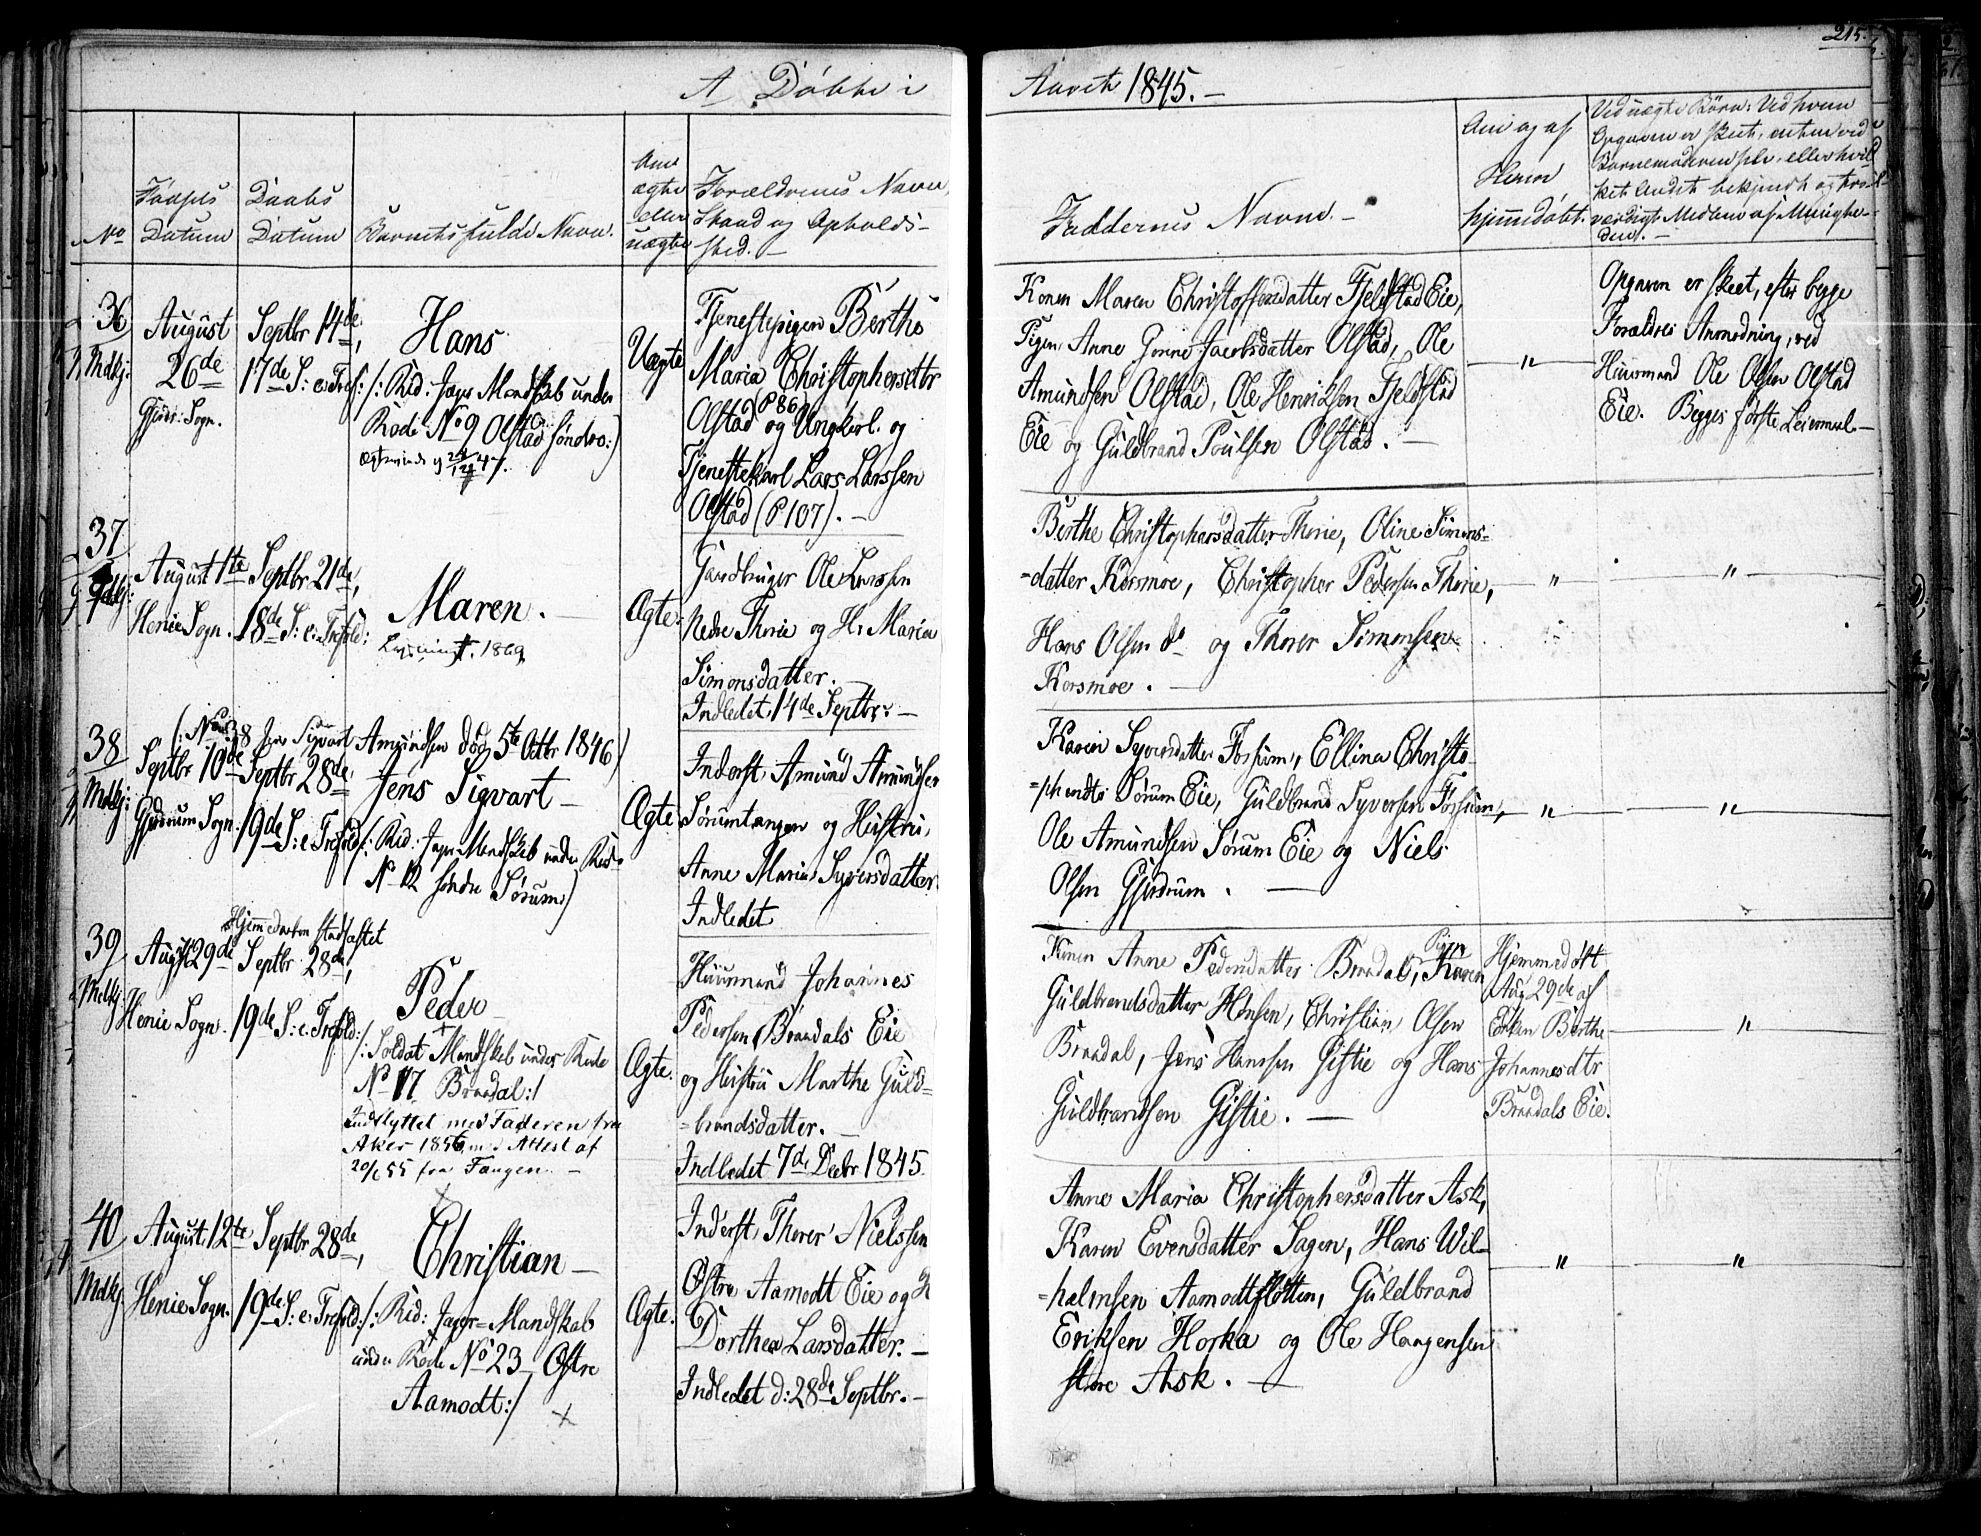 215.
A Döbte i
Aaret 1845.-
No
Fødsels
Datum
Daabs
Datum
Barnets fulde Navn.
Om
ægte
eller
uægte
Forældrenes Navn,
Stand og Opholds-
sted.-
Faddernes Navne.-
Om og af
Hvem
hjemmedöbt.
Ved uægte Börn: Ved hvem
Opgaven er skeet, enten ved
Barnemoderen selv, eller hvil-
ket lendet bekjendt og trov-
værdigt Medlem af Menighe-
den.-
36
Mdkj:
August
26de
Gjerdr: Sogn.
Septbr 14de,
17de S: e: Tref:
Hans
/: Rid: Jæger Mandskab under
Rode No 9 Olstad söndre:/
Uægte
Tjenestepigen Berthe
Maria Christophersdtr
Olstad (P 86) og Ungkarl og
Tjenestekarl Lars Larssen
Olstad (P 107).-
Konen Maren Christoffersdatter Fjeldstad Eie,
Pigen Anne Gonne Jacobsdatter Olstad, Ole
Amundsen Olstad, Ole Henriksen Fjeldstad
Eie og Guldbrand Poulsen Olstad.-
"
Opgaven er skeet, efter begge
Forældres Anmodning, ved
Huusmand Ole Olsen Olstad
Eie. Begges förste Leiermaal.-
37
August 1te
Henie Sogn.
Septbr 21de,
18de S: e: Trefold:
Maren.-
1869
Ægte.
Gaardbruger Ole Larssen
Nedre Thorie og H: Maria
Simonsdatter.-
Indledet 14de Septbr.-
Berthe Christophersdatter Thorie, Oline Simons-
=datter Korsmoe, Christopher Pedersen Thorie,
Hans Olsen do og Thorer Simonsen
Korsmoe.-
"
"
38
Mdkj:
(: No 38 Jens Sigvart Amundsen död 5te Octbr 1846)
Septbr 10de
Gjerdrum Sogn
Septbr 28de,
19de S: e: Trefold
Jens Sigvart-
/: Rid: Jæger Mandskab under Rode
No 12 söndre Sörum)
Ægte.
Inderst Amund Amundsen
Sörumtangen og Hustru,
Anne Maria Syversdatter.
Indledet
Karen Syversdatter Fossum, Ellina Christo-
=phersdtr Sörum Eie, Guldbrand Syversen Fossum,
Ole Amundsen Sörum Eie og Niels
Olsen Gjerdrum.-
"
"
39
Mdkj:
Hjemmedaaben stadfæstet
August 29de
Henie Sogn.
Septbr 28de,
19de S: e: Trefold:
Peder
/: Soldat Mandskab under Rode
No 17 Braadal:/
Indflyttet med Faderen fra
Aker 1856 m. Attest af
20/6 55 fra Fangen.-
Ægte.
Huusmand Johannes
Pedersen Braadals Eie
og Hustru Marthe Guld-
=brandsdatter.-
Indledet 7de Decbr 1845.
Konen Anne Pedersdatter Braadal, Pigen Karen
Guldbrandsdatter Hönsen, Christian Olsen
Braadal, Jens Hanssen Gistie og Hans
Guldbrandsen Gistie.-
Hjemmedöbt
Aug 29de af
Enken Berthe
Johannesdtr
Braadals Eie.
"
40
Mdkj
August 12te
Henie Sogn.
Septbr 28de,
19de S: e: Trefold:
Christian-
/: Rid: Jæger=Mandskab
under Rode No 23 Östre
Aamodt:/
Ægte.
Inderst Thorer Nielssen
Östre Aamodt Eie og H
Dorthea Larsdatter.-
Indledet d: 28de Septbr.-
Anne Maria Christophersdatter Ask,
Karen Evensdatter Sagen, Hans Wil-
=halmsen Aamodtslötten, Guldbrand
Eriksen Horka og Ole Haagensen
store Ask.-
"
"